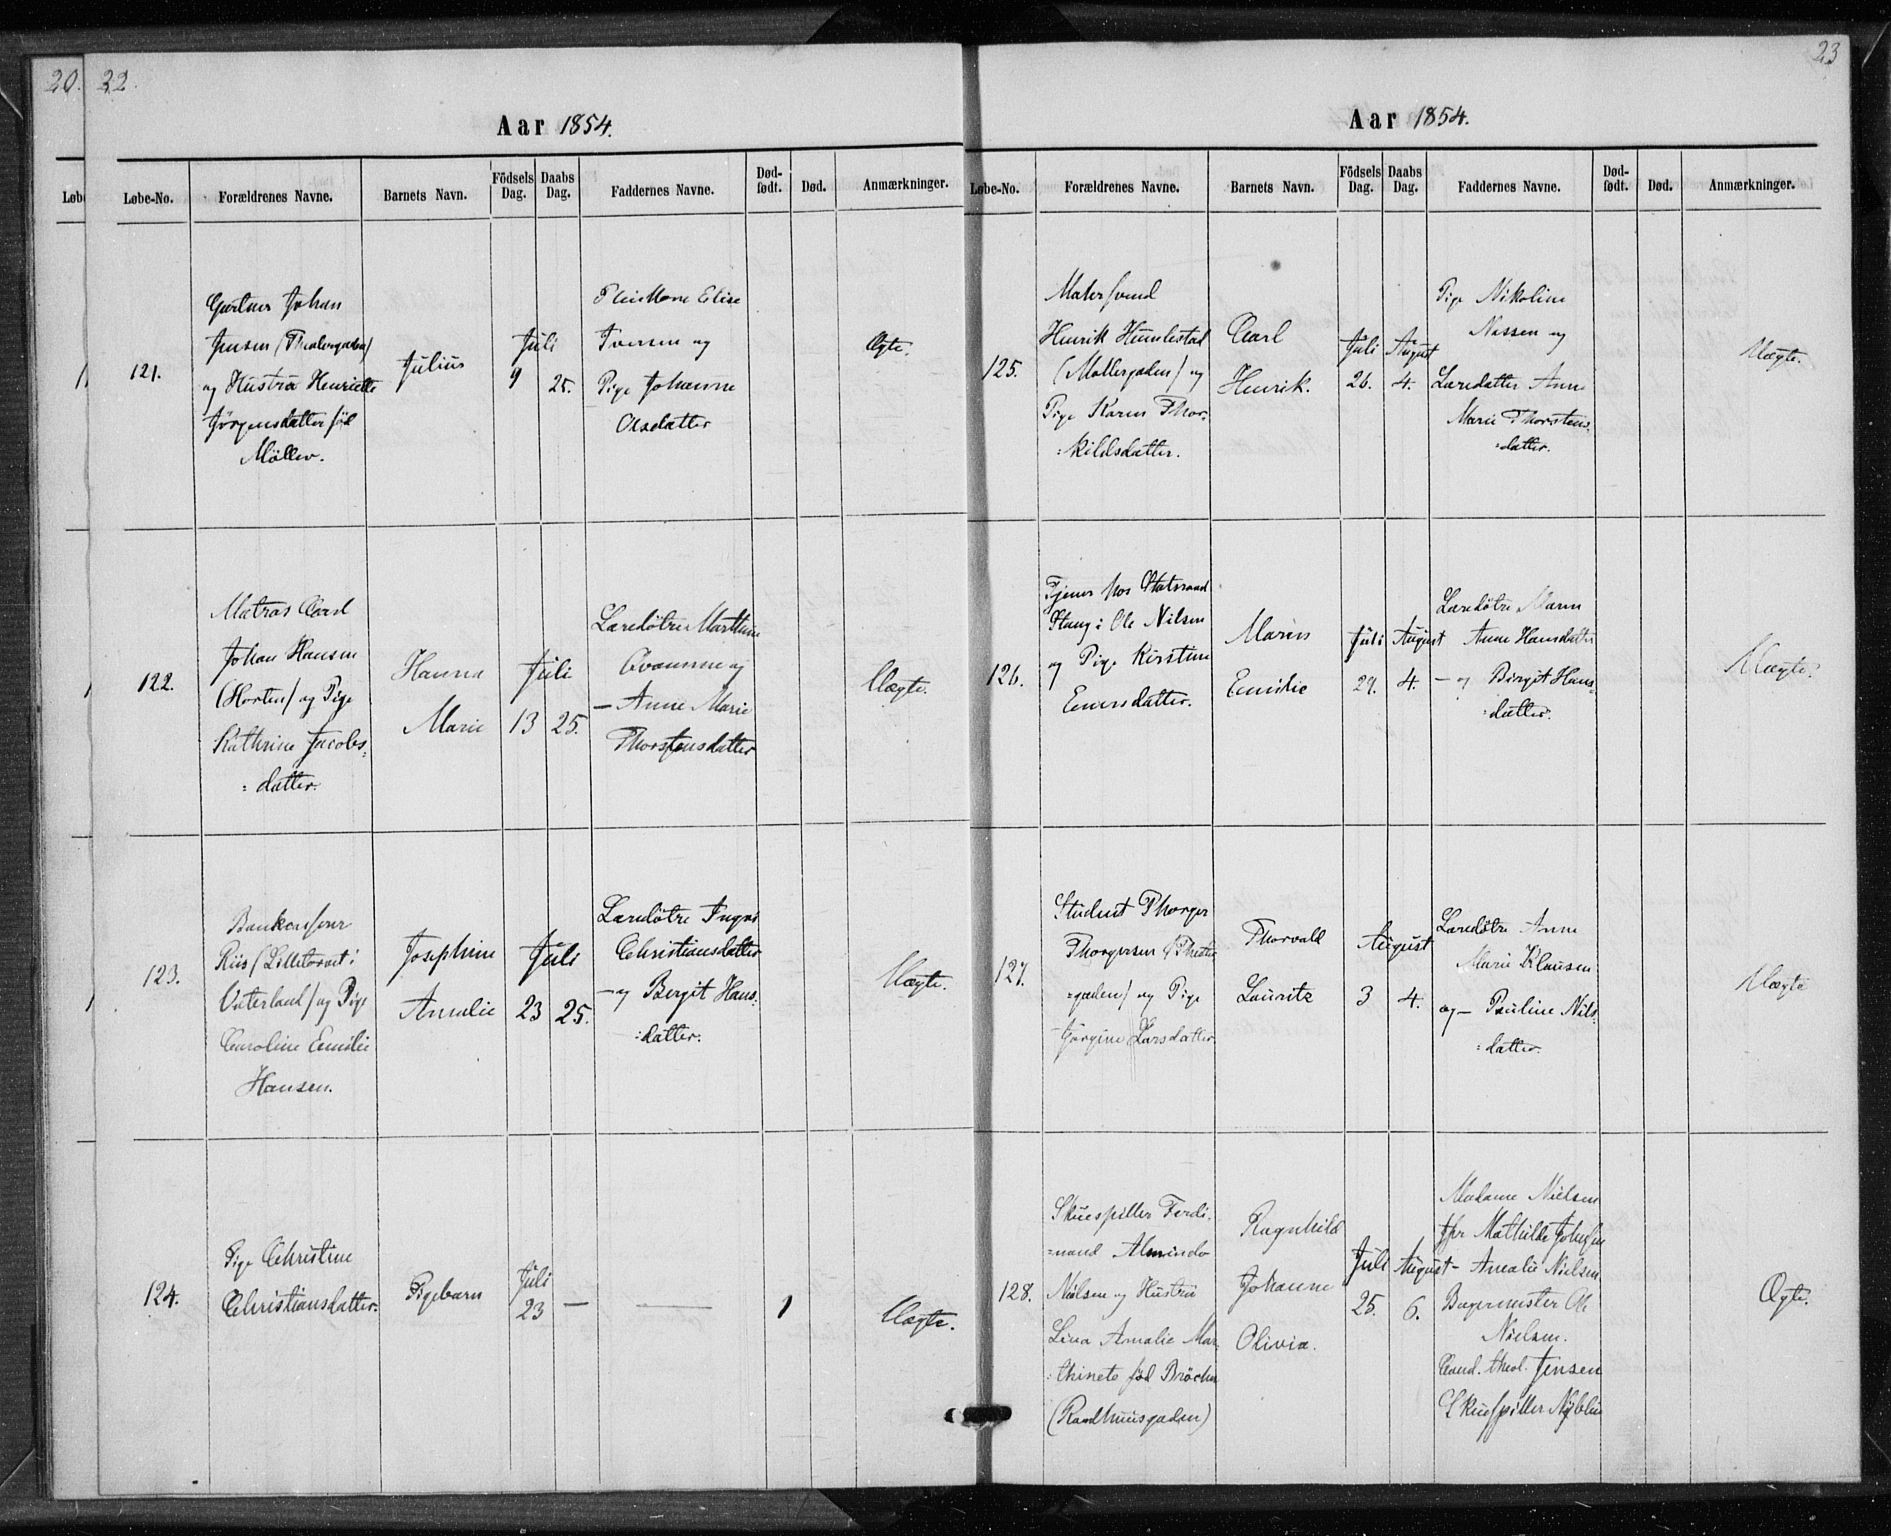 20.
22.
Aar 1854.
Løbe-No.
Forældrenes Navne.
Barnets Navn.
Födsels Dag.
Daabs Dag.
Faddernes Navne.
Død-födt.
Død.
Anmærkninger.
121.
Gartner Johan
Jensen (Theatergaden)
og Hustru Henriette
Jörgensdatter föd
Møller.
Julius
Juli
9
25.
Elise
Iversen og
Pige Johanne
Olsdatter
Ægte.
122.
Matros Carl
Johan Hansen
(Horten) og Pige
Kathrine Jacobs-
=datter.
Hanna
Marie
Juli
13
25.
Læredøtre Marthine
og
— Anne Marie
Thorstensdatter
Uægte.
123.
Riis (Lilletorvet i
Vaterland) og Pige
Caroline Emilie
Hansen.
Josephine
Amalie
Juli
23
25.
Læredøtre
Christiansdatter
— og Bergit Hans-
=datter.
Uægte.
124.
Pige Christine
Christiansdatter.
Pigebarn
Juli
23
—
—
1
Uægte.
23
Aar 1854.
Løbe-No.
Forældrenes Navne.
Barnets Navn.
Födsels Dag.
Daabs Dag.
Faddernes Navne.
Død-födt.
Død.
Anmærkninger.
125.
Malersvend
Henrik Humlestad
(Møllergaden) og
Pige Karen Thor-
=kildsdatter.
Carl
Henrik.
Juli
26.
August
4.
Pige Nikoline
Nissen og
Læredatter Anne
Marie Thorstens-
=datter.
Uægte.
126.
Tjener hos Statsraad
Stang: Ole Nilsen
og Pige Kirstine
Enersdatter.
Maren
Emilie
Juli
29.
August
4.
Læredøtre Maren
Anne Hansdatter
— og Birgit Hans-
=datter.
Uægte.
127.
Student Thorger
Thorgersen (Theater
=gaden) og Pige
Jørgine Larsdatter.
Thorvald
Lauritz
August
3
4.
Læredøtre Anne
Marie Klausen
og — Pauline Nils-
=datter.
Uægte
128.
Skuespiller Ferdi-
=nand Almindo
Nielsen og Hustru
Lina Amalie Mar-
=thinete föd Bröcker
(Raadhuusgaden)
Ragnhild
Johanne
Olivia.
Juli
25.
August
6.
Madame Nielsen
Jfr Mathilde Johnsen
— Amalie Nielsen
Bagermester Ole
Nielsen.
Cand. theol. Jensen
Skuespiller Nyblin
Ægte.